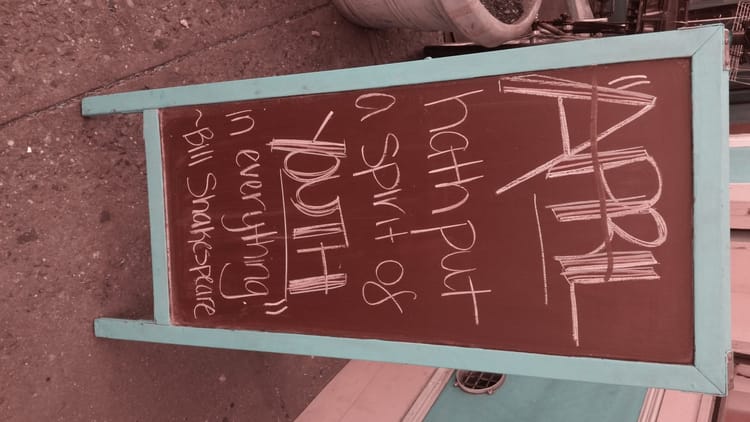 "APRIL
hath put
a spirit of
YOUTH"
in everything.
~Bill Shakespeare